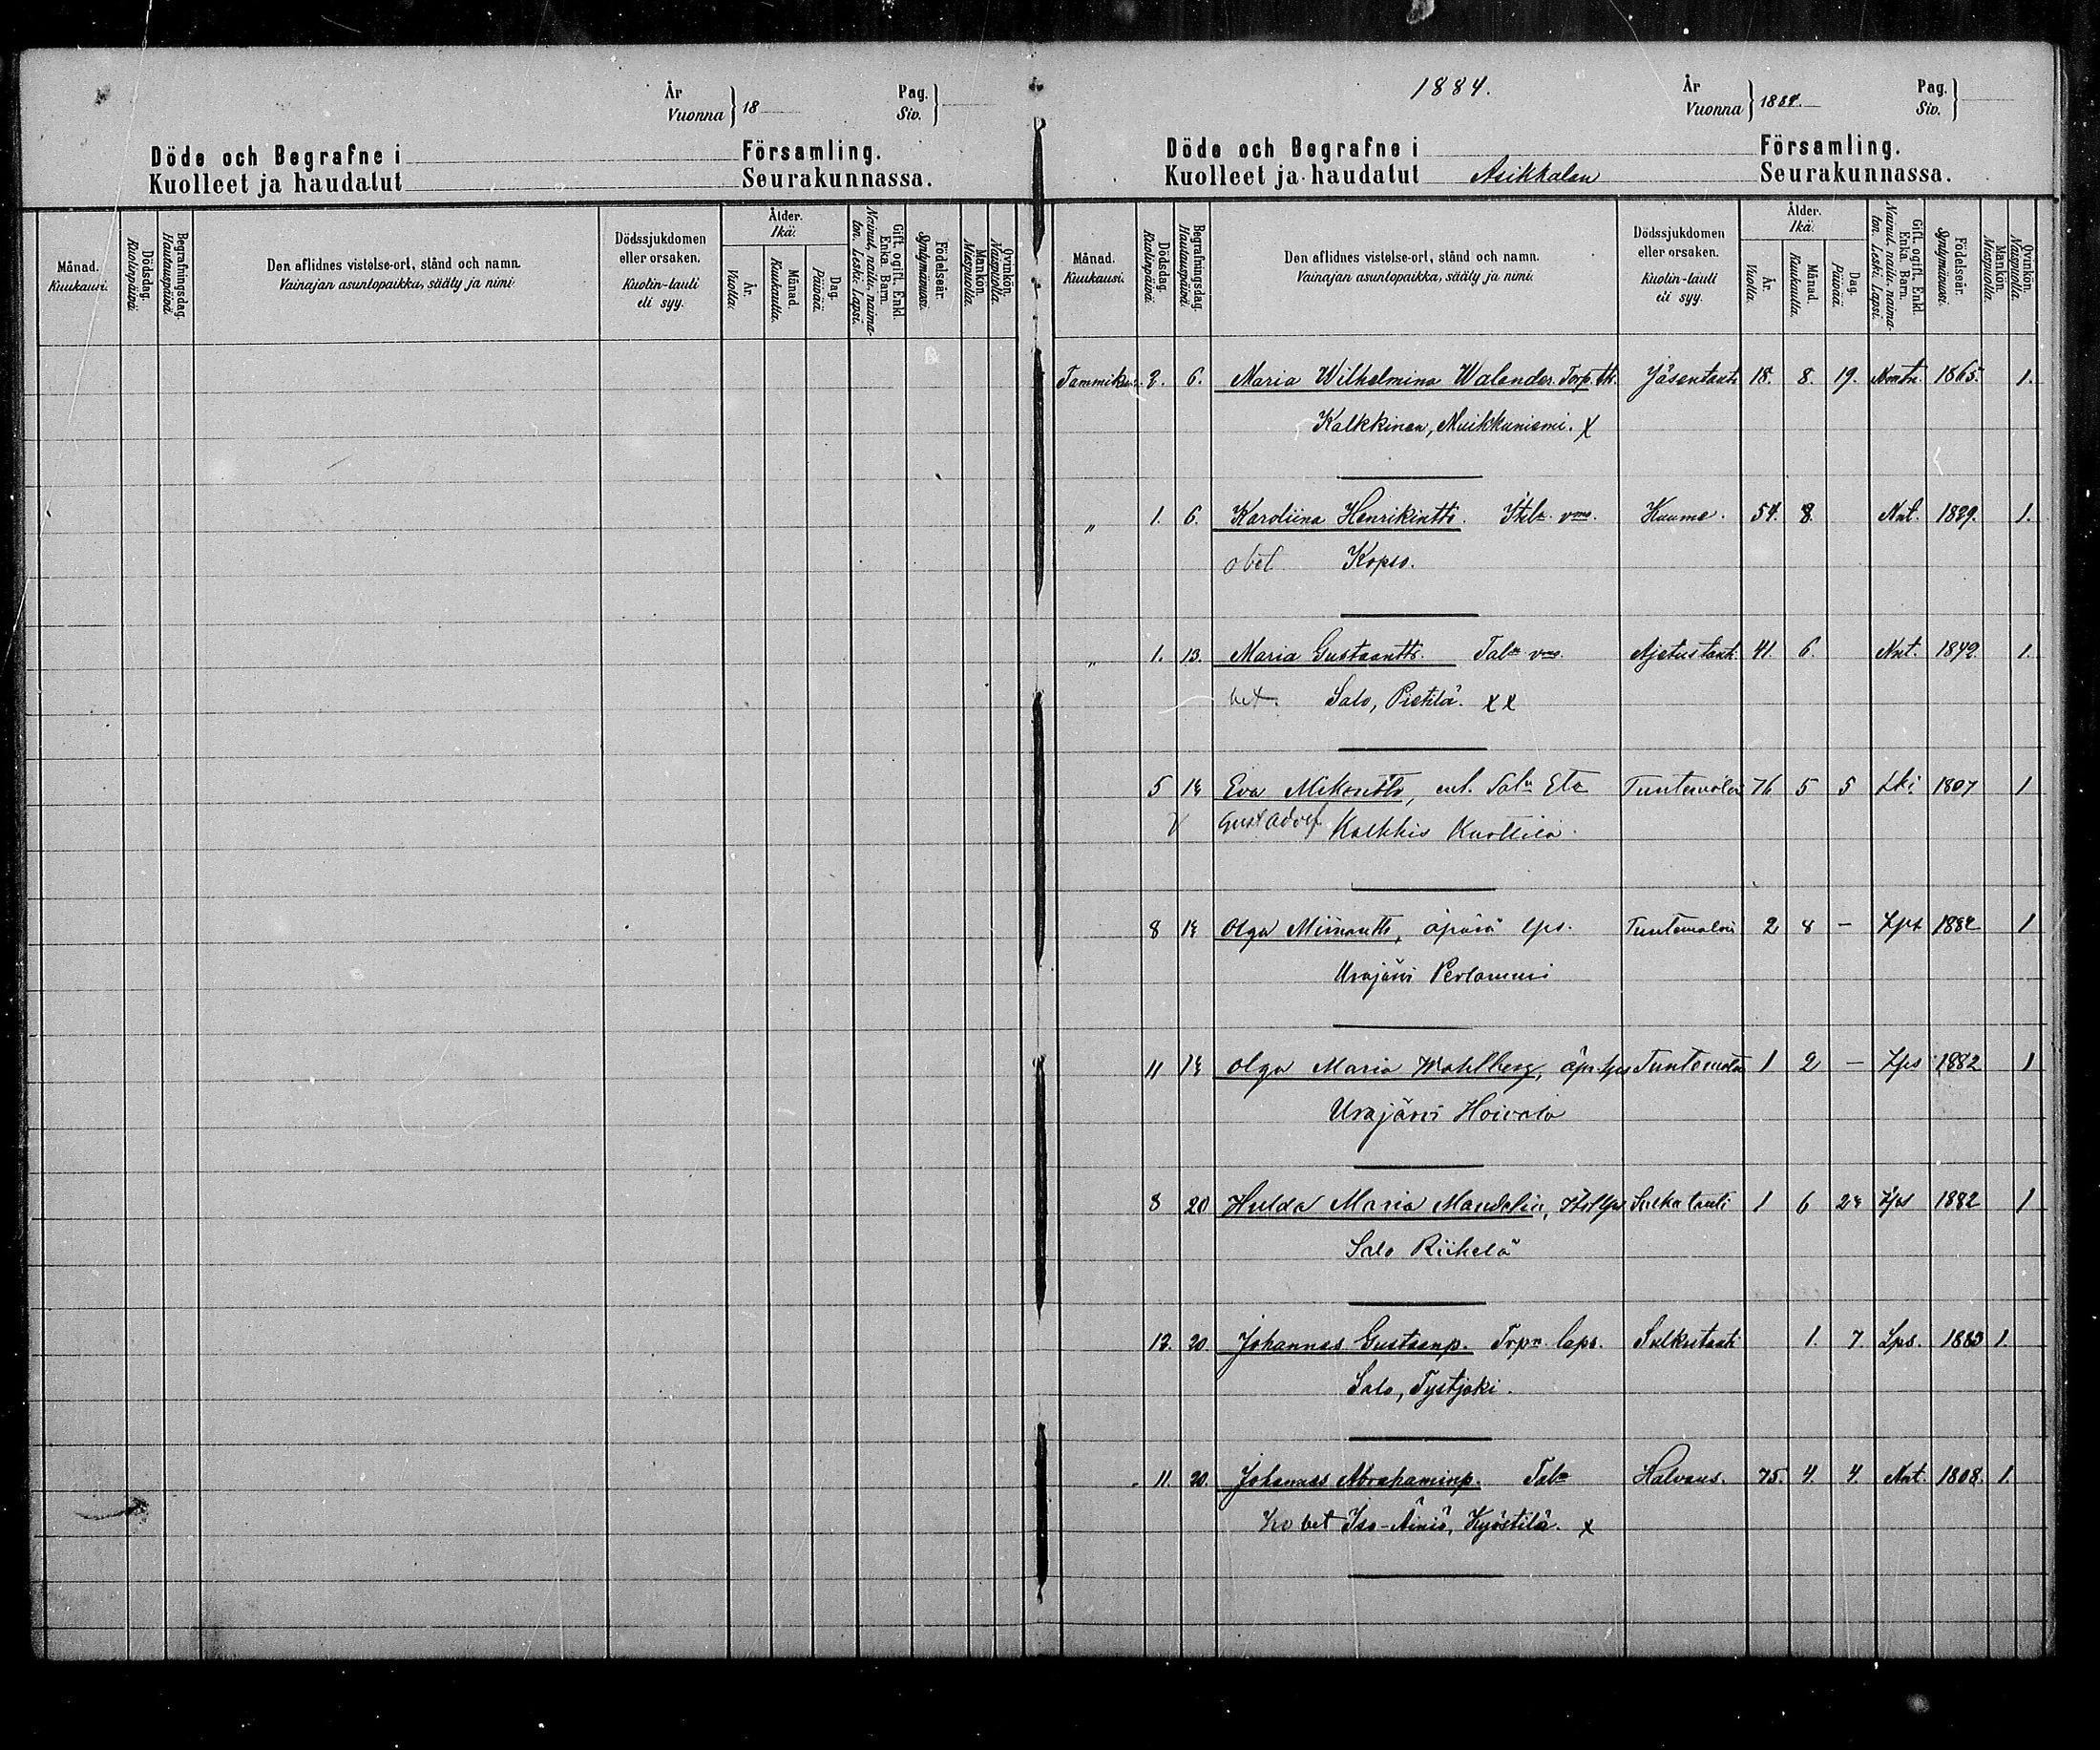 År
Vuonna } 18
Pag.
Siv. }
Döde och Begrafne i Församling.
Kuolleet ja haudatut Seurakunnassa.
Månad.
Kuukausi.
Dödsdag.
Kuolinpäivä.
Begrafningsdag.
Hautauspäivä.
Den aflidnes vistelse-ort, stånd och namn.
Vainajan asuntopaikka, sääty ja nimi.
Dödssjukdomen
eller orsaken.
Kuolin-tauti
eli syy.
Ålder.
Ikä.
År.
Vuotta.
Månad.
Kuukautta.
Dag.
Päivää.
Gift, ogift, Enkl.
Enka, Barn.
Nainut, naitu, naima-
ton. Leski. Lapsi.
Födelseår.
Syntymävuosi.
Mankön.
Miespuolia.
Qvinkön.
Naispuolia.
1884.
År
Vuonna } 1884.
Pag.
Siv. }
Döde och Begrafne i Församling.
Kuolleet ja haudatut Asikkalan Seurakunnassa.
Månad.
Kuukausi.
Dödsdag.
Kuolinpäivä.
Begrafningsdag.
Hautauspäivä.
Den aflidnes vistelse-ort, stånd och namn.
Vainajan asuntopaikka, sääty ja nimi.
Dödssjukdomen
eller orsaken.
Kuolin-tauti
eli syy.
Ålder.
Ikä.
År.
Vuotta.
Månad.
Kuukautta.
Dag.
Päivää.
Gift, ogift, Enkl.
Enka, Barn.
Nainut, naitu, naima-
ton. Leski. Lapsi.
Födelseår.
Syntymävuosi.
Mankön.
Miespuolia.
Qvinkön.
Naispuolia.
2. 6. Maria Wilhelmina Walander. Torp. tt. Jäsentauti 18. 8. 19. 1865. 1.
Kalkkinen, Muikkuniemi. x
„ 1. 6. Karoliina Henrikintr. Itsln vmo. Kuume. 54. 8. Nnt. 1829. 1.
obet Kopso.
„ 1. 13. Maria Gustaantr. Taln vmo. Ajetustauti 41. 6. Nnt. 1842. 1.
bet. Salo, Pietilä. x x
5 Eva Mikontr, ent. Taln 76 5 5 Lki 1807 1
Gust Adolf Kalkkis
8 Olga Miinantr, äpärä lps. 2 8 – Lps 1882 1
Urajärvi Perlammi
11 Olga Maria Wahlberg, äpr lps 1 2 – Lps 1882 1
Urajärvi Hoivala
8 20 Hulda Maria Mandelin, Sulkutauti 1 6 Lps 1882 1
Salo Riihelä
12. 20. Johannes Gustaanp. Trpn laps. Sulkutauti 1. 7. Lps. 1883 1.
Salo, Tystjoki.
11. 20. Johannes Abrahaminp. Taln Halvaus. 75. 4. 4. Nnt. 1808. 1.
bet Iso-Äiniö, Kyöstilä. x